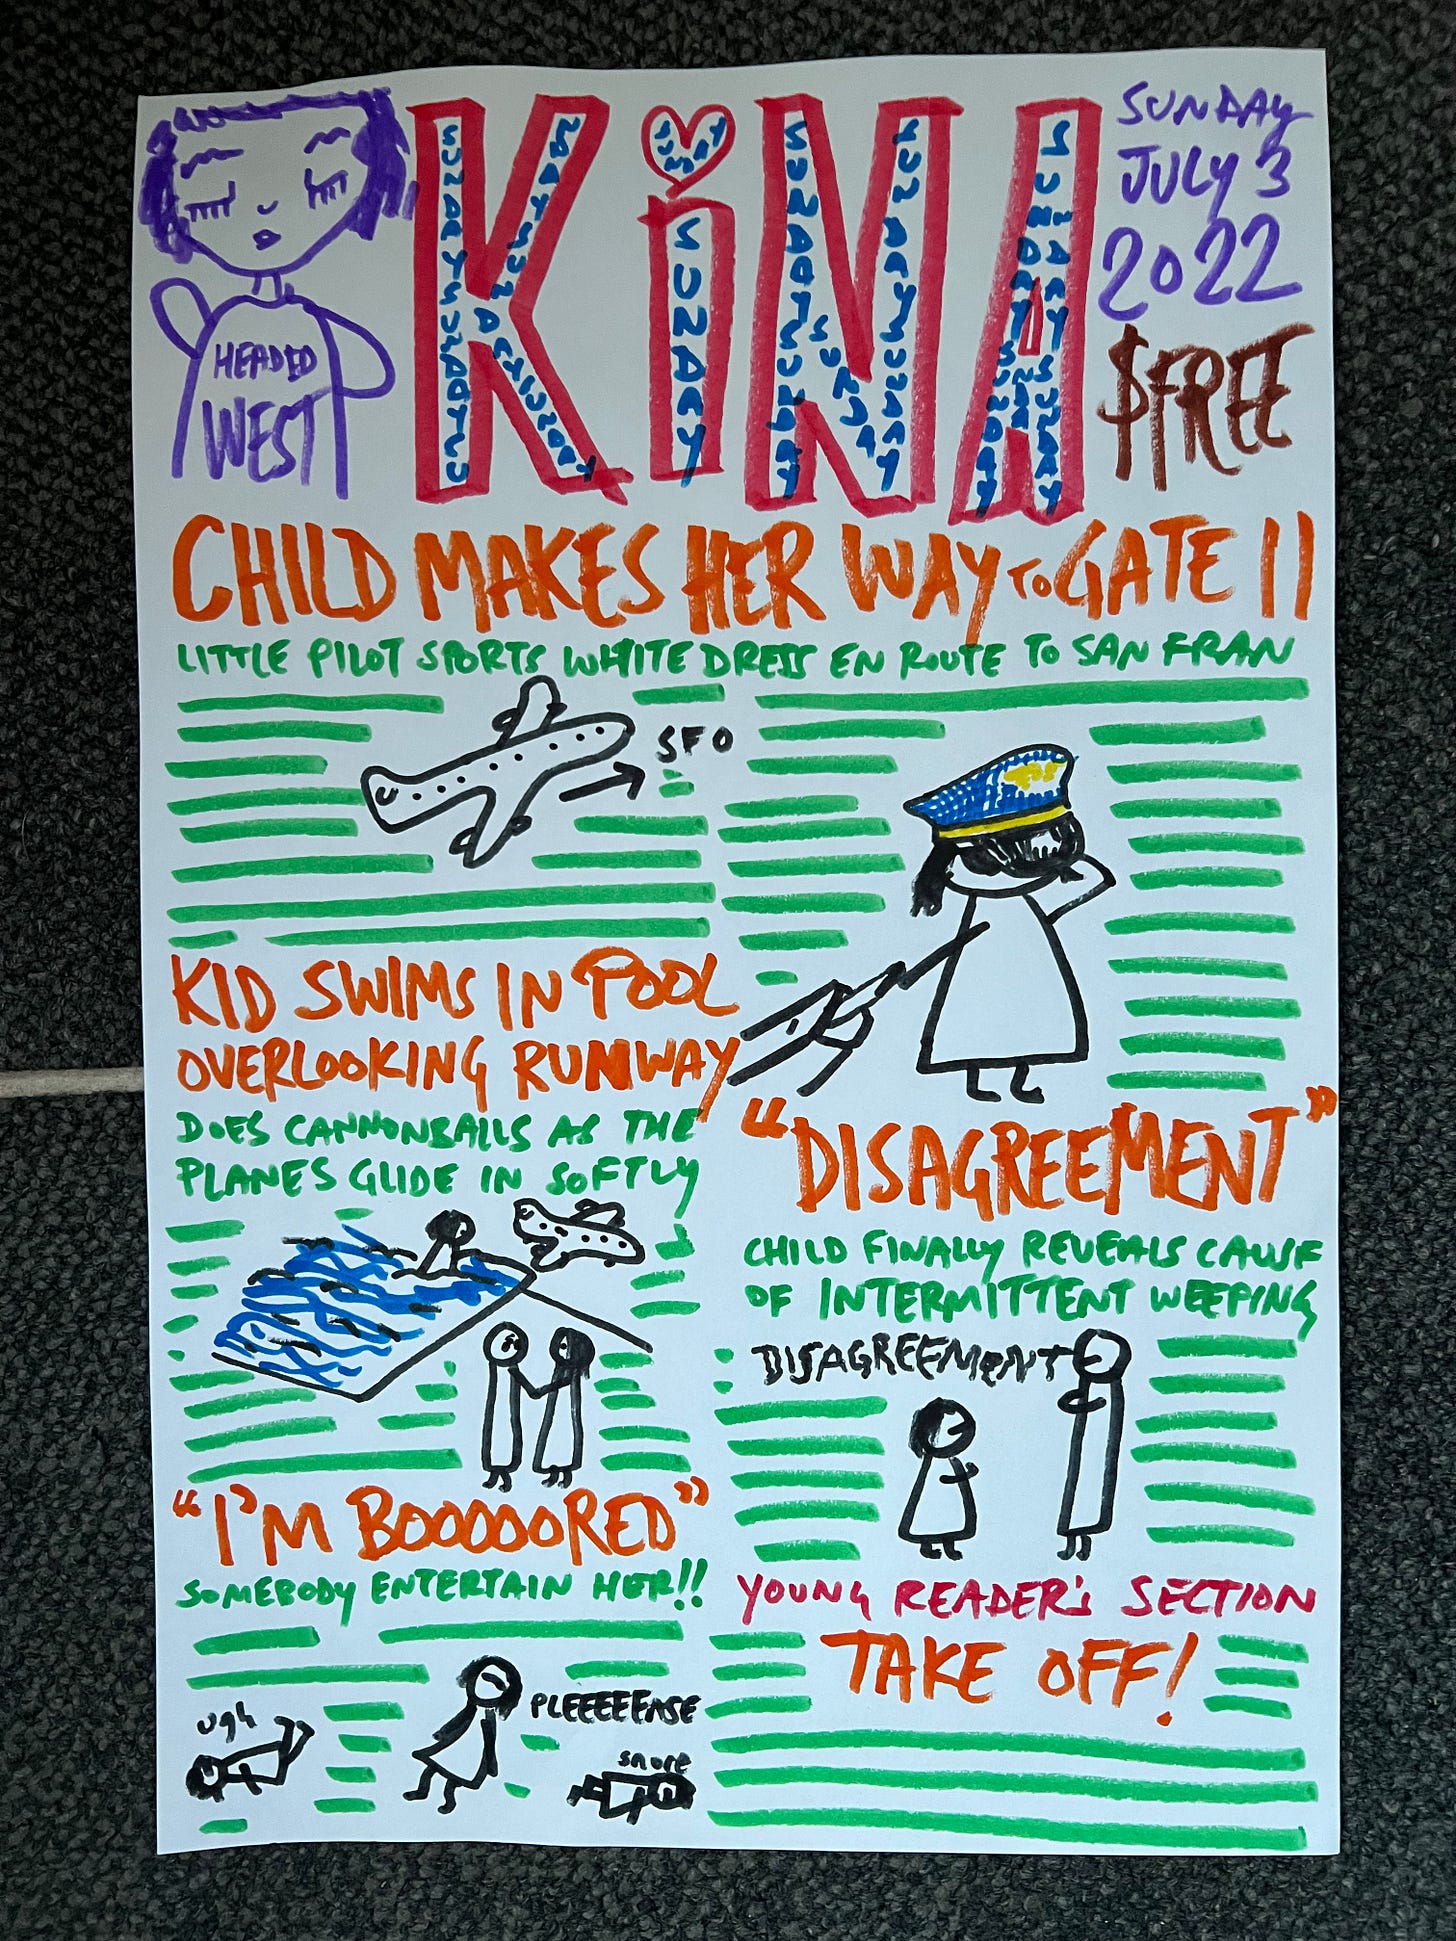 HEADED
WEST
KiNA
SUNDAY
JULY 3
2022
$FREE
CHILD MAKES HER WAY TO GATE 11
LITTLE PILOT SPORTS WHITE DRESS EN ROUTE TO SAN FRAN
SFO
KID SWIMS IN POOL
OVERLOOKING RUNWAY
DOES CANNONBALLS AS THE
PLANES GLIDE IN SOFTLY
"I'M BOOOOORED"
SOMEBODY ENTERTAIN HER!!
ugh
PLEEEEEASE
snore
"DISAGREEMENT"
CHILD FINALLY REVEALS CAUSE
OF INTERMITTENT WEEPING
DISAGREEMENT
YOUNG READER'S SECTION
TAKE OFF!